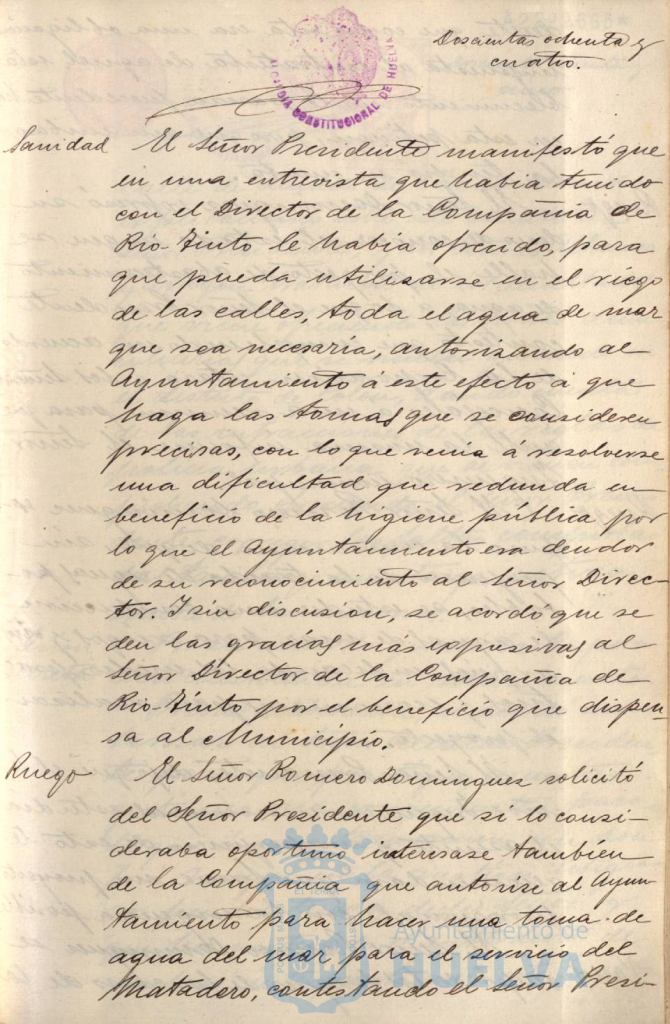 Doscientas ochenta y
cuatro.
ALCALDIA CONSTITUCIONAL DE HUELVA
Sanidad El Señor Presidente manifestó que
en una entrevista que habia tenido
con el Director de la Compañia de
Rio-Tinto le habia ofrecido, para
que pueda utilizarse en el riego
de las calles, toda el agua de mar
que sea necesaria, autorizando al
Ayuntamiento á este efecto á que
haga las tomas que se consideren
precisas, con lo que venia á resolverse
una dificultad que redunda en
beneficio de la higiene pública por
lo que el Ayuntamiento era deudor
de su reconocimiento al Señor Direc-
tor. I sin discusion, se acordó que se
den las gracias más expresivas al
Señor Director de la Compañia de
Rio-Tinto por el beneficio que dispen-
sa al Municipio.
Ruego El Señor Romero Dominguez solicitó
del Señor Presidente que si lo consi-
deraba oportuno interesase también
de la Compañia que autorize al Ayun-
tamiento para hacer una toma de
agua del mar para el servicio del
Matadero, contestando el Señor Presi-
Ayuntamiento de
HUELVA